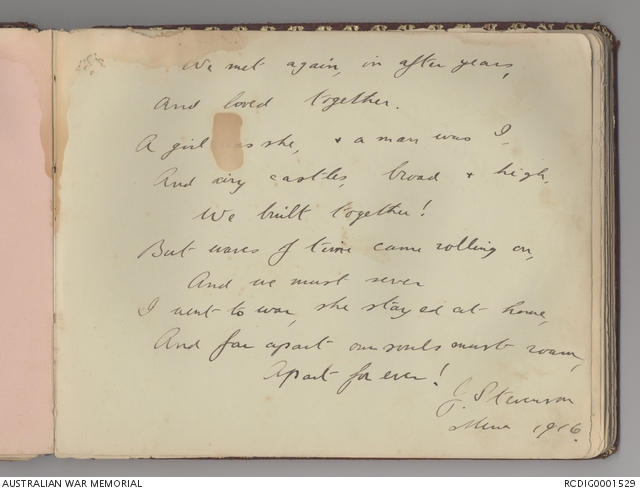 We met again, in after years,
And loved together.
A girl as she, & a man was I.
And airy castles, broad & high,
We built together!
But waves of time came rolling on,
And we must sever
I went to war, she stayed at home,
And far apart our souls must roam,
Apart for ever!
J. Stevenson
Mena 1916.
AUSTRALIAN WAR MEMORIAL
RCDIG0001529